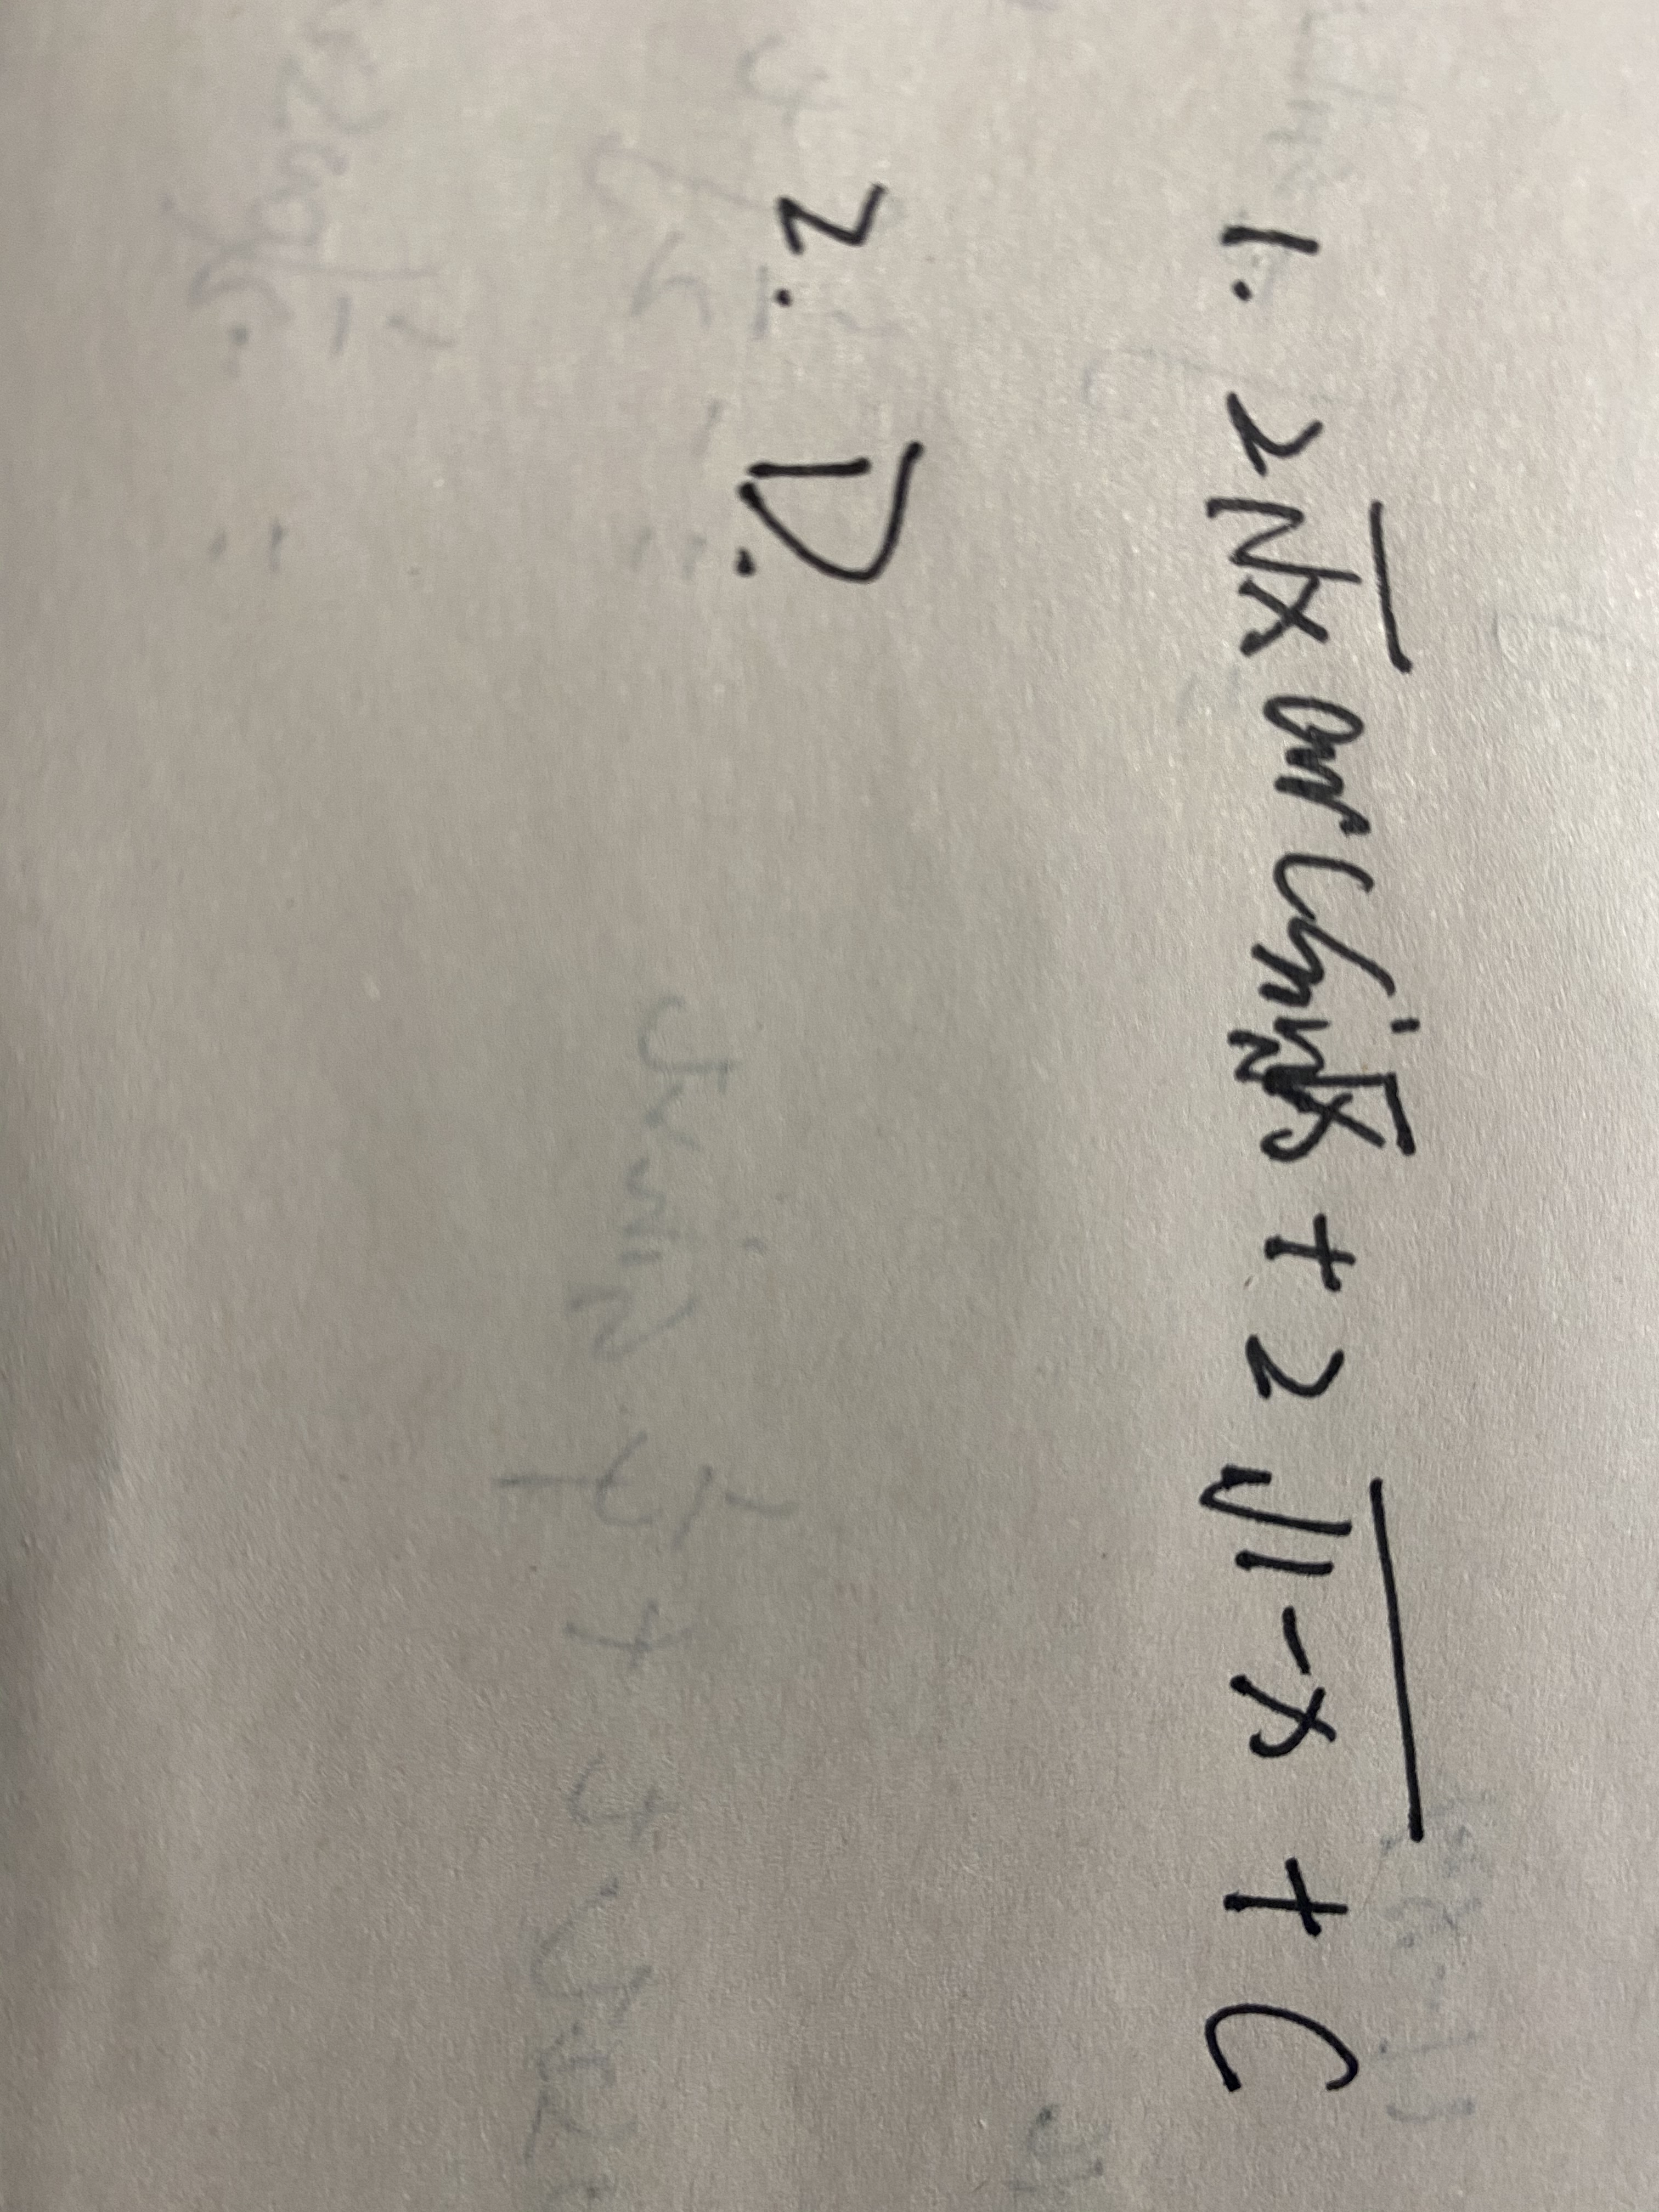 1. 2√x arcsin√x + 2√1-x + C
2. D.